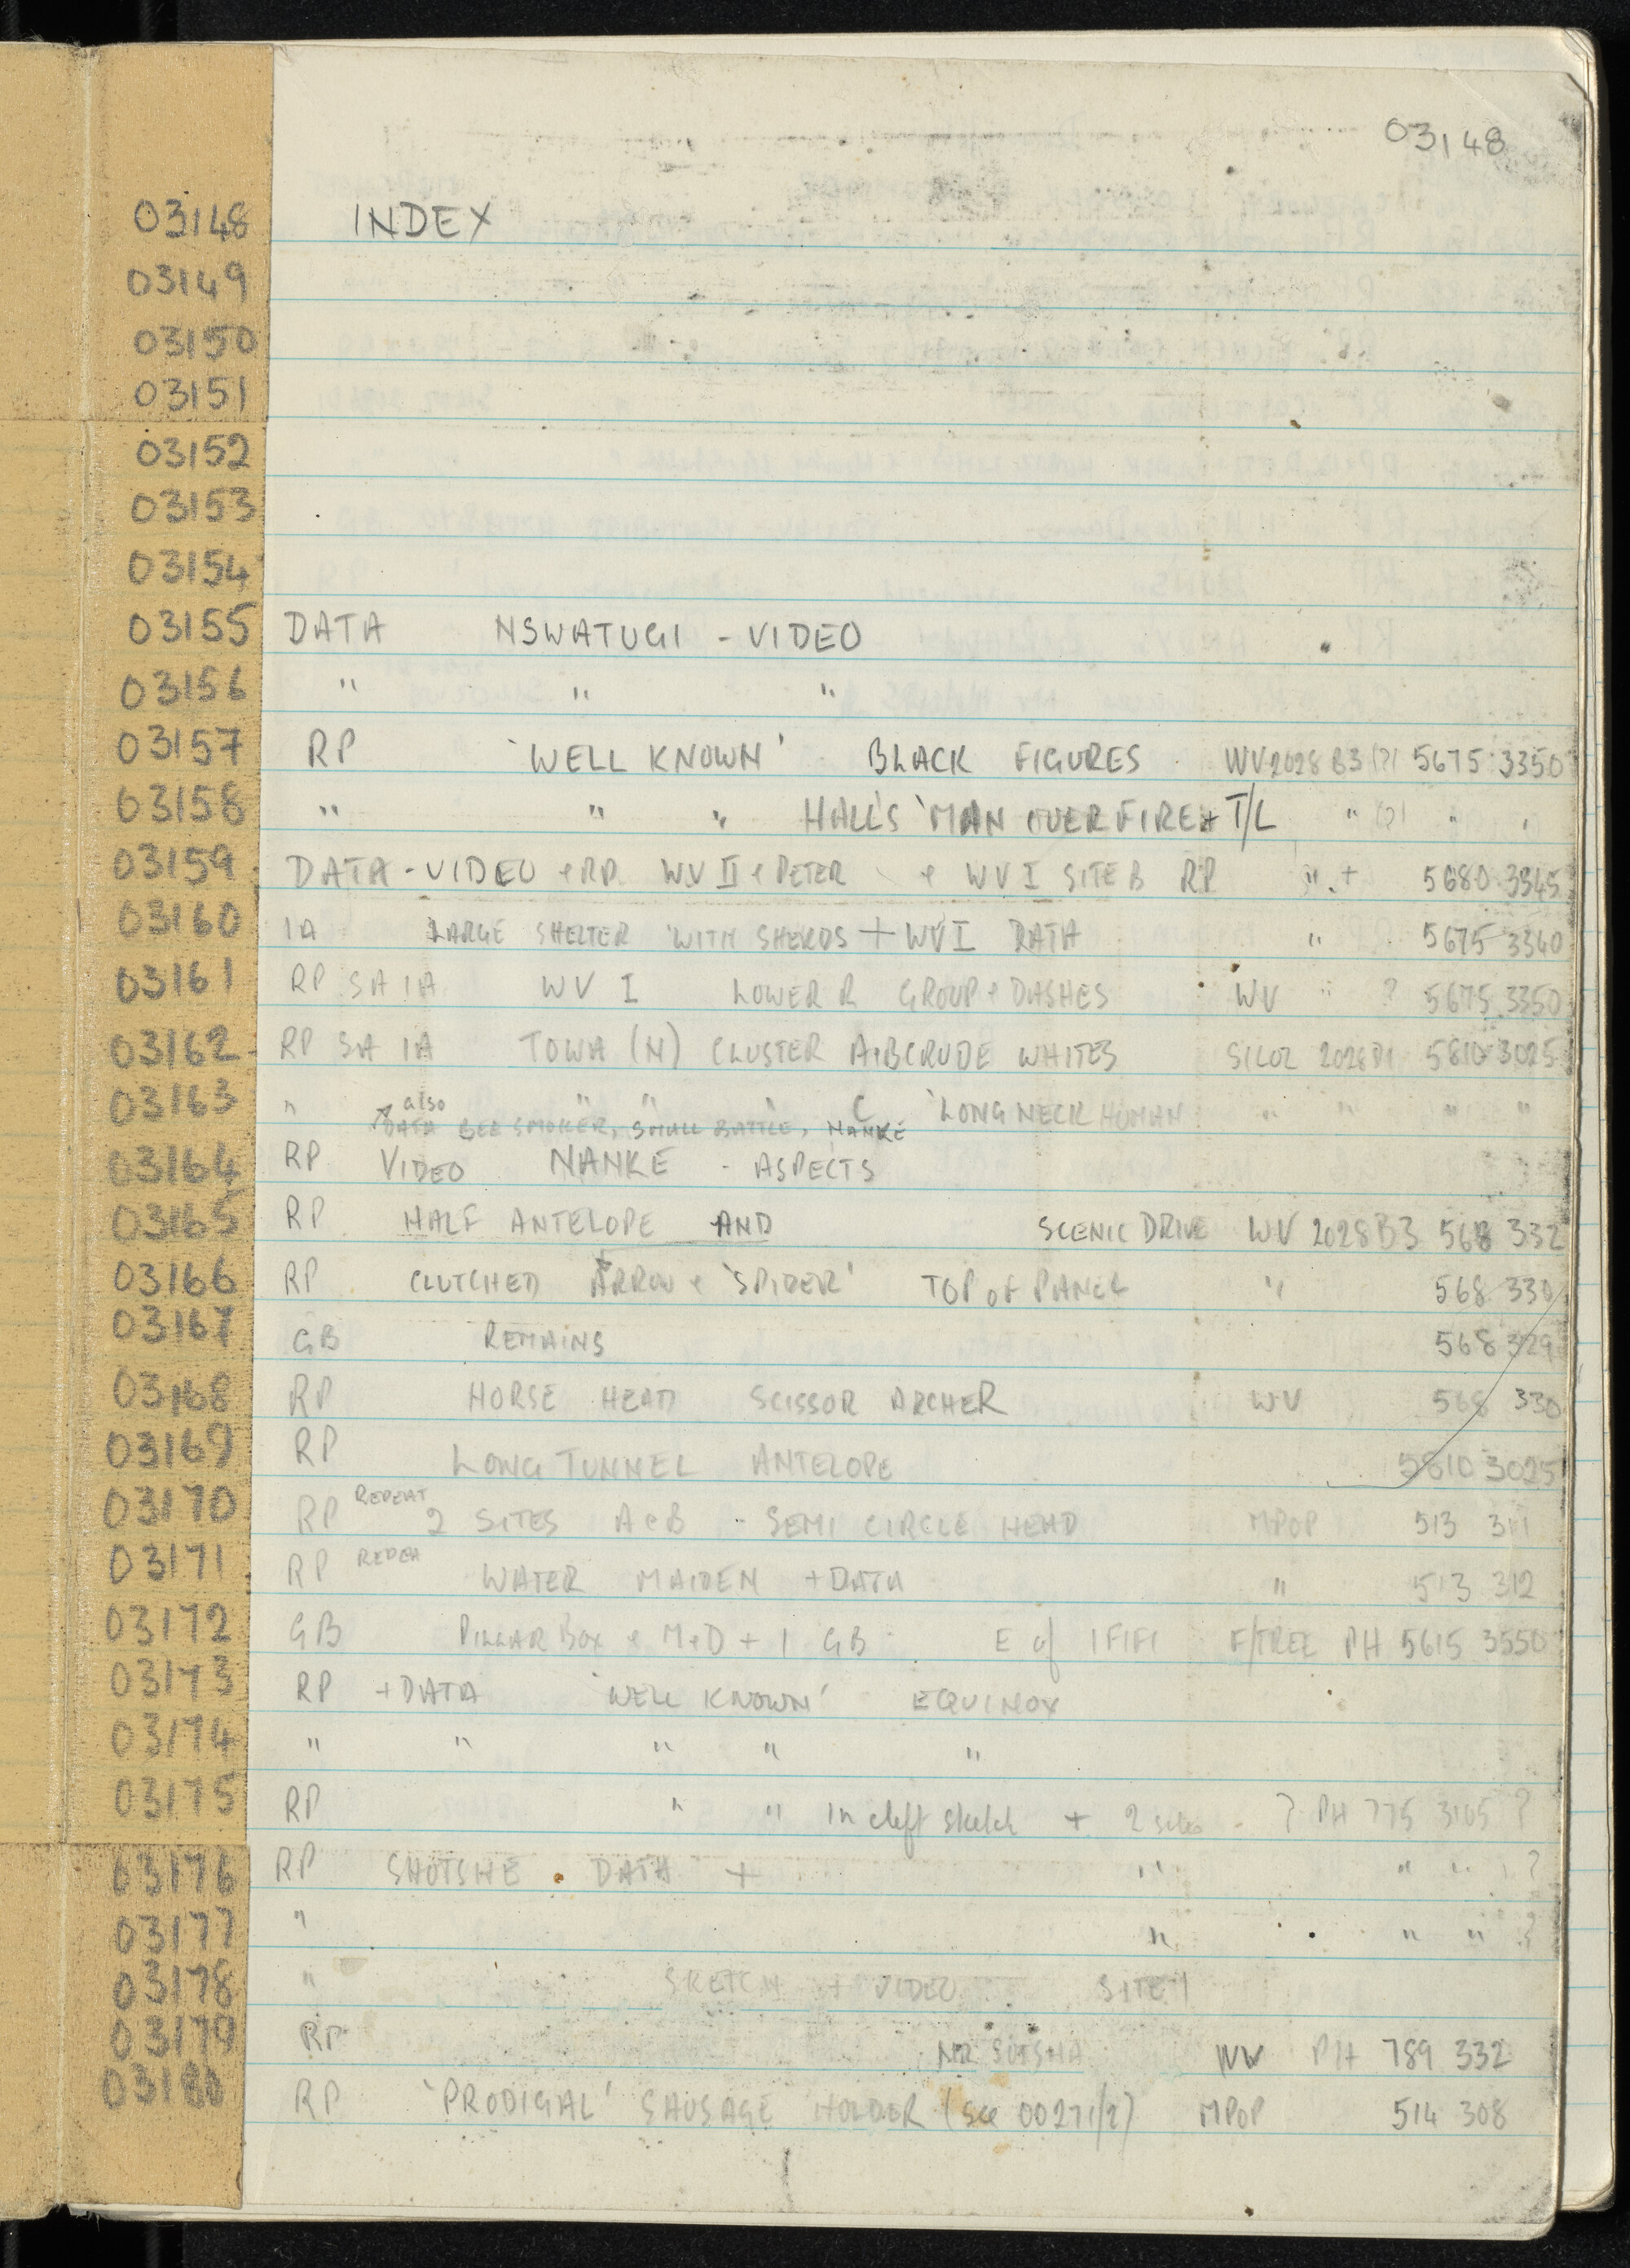 03148
03148 INDEX
03149
03150
03151
03152
03153
03154
03155 DATA NSWATUGI - VIDEO
03156 " " "
03157 RP 'WELL KNOWN' BLACK FIGURES WV 2028 B3 (?) 5675 3350
03158 " " " HALL'S 'MAN OVER FIRE + T/L " (?) " "
03159 DATA - VIDEO + RP WV II + PETER + WV I SITE B RP " + 5680 3345
03160 IA LARGE SHELTER WITH SHERDS + WV I DATA " 5675 3340
03161 RP SA IA WV I LOWER R GROUP + DASHES WV " ? 5675 3350
03162 RP SA IA TOWA (N) CLUSTER A+B CRUDE WHITES SILOZ 2028 D1 5810 3025
03163 " " " " C 'LONG NECK HUMAN " " " "
also DATA BEE SMOKER, SMALL BATTLE, NANKE
03164 RP VIDEO NANKE - ASPECTS
03165 RP HALF ANTELOPE AND SCENIC DRIVE WV 2028 B3 568 332
03166 RP CLUTCHED ARROW + 'SPIDER' TOP OF PANEL " 568 330
03167 GB REMAINS 568 329
03168 RP HORSE HEAD SCISSOR ARCHER WV 568 330
03169 RP LONG TUNNEL ANTELOPE 5810 3025
03170 RP REPEAT 2 SITES A+B - SEMI CIRCLE HEAD MPOP 513 311
03171 RP REPEA WATER MAIDEN + DATA " 513 312
03172 GB PILLAR BOX + M+D + 1 GB E of IFIFI F/TREE PH 5615 3550
03173 RP + DATA 'WELL KNOWN' EQUINOX
03174 " " " " "
03175 RP " " in cleft sketch + 2 sites - ? PH 775 3105 ?
03176 RP SHOTSHE DATA + " " " ?
03177 " " " " ?
03178 " SKETCH + VIDEO SITE 1
03179 RP NR SUTSHA WW PH 789 332
03180 RP 'PRODIGAL' SAUSAGE HOLDER (see 00271/2) MPOP 514 308